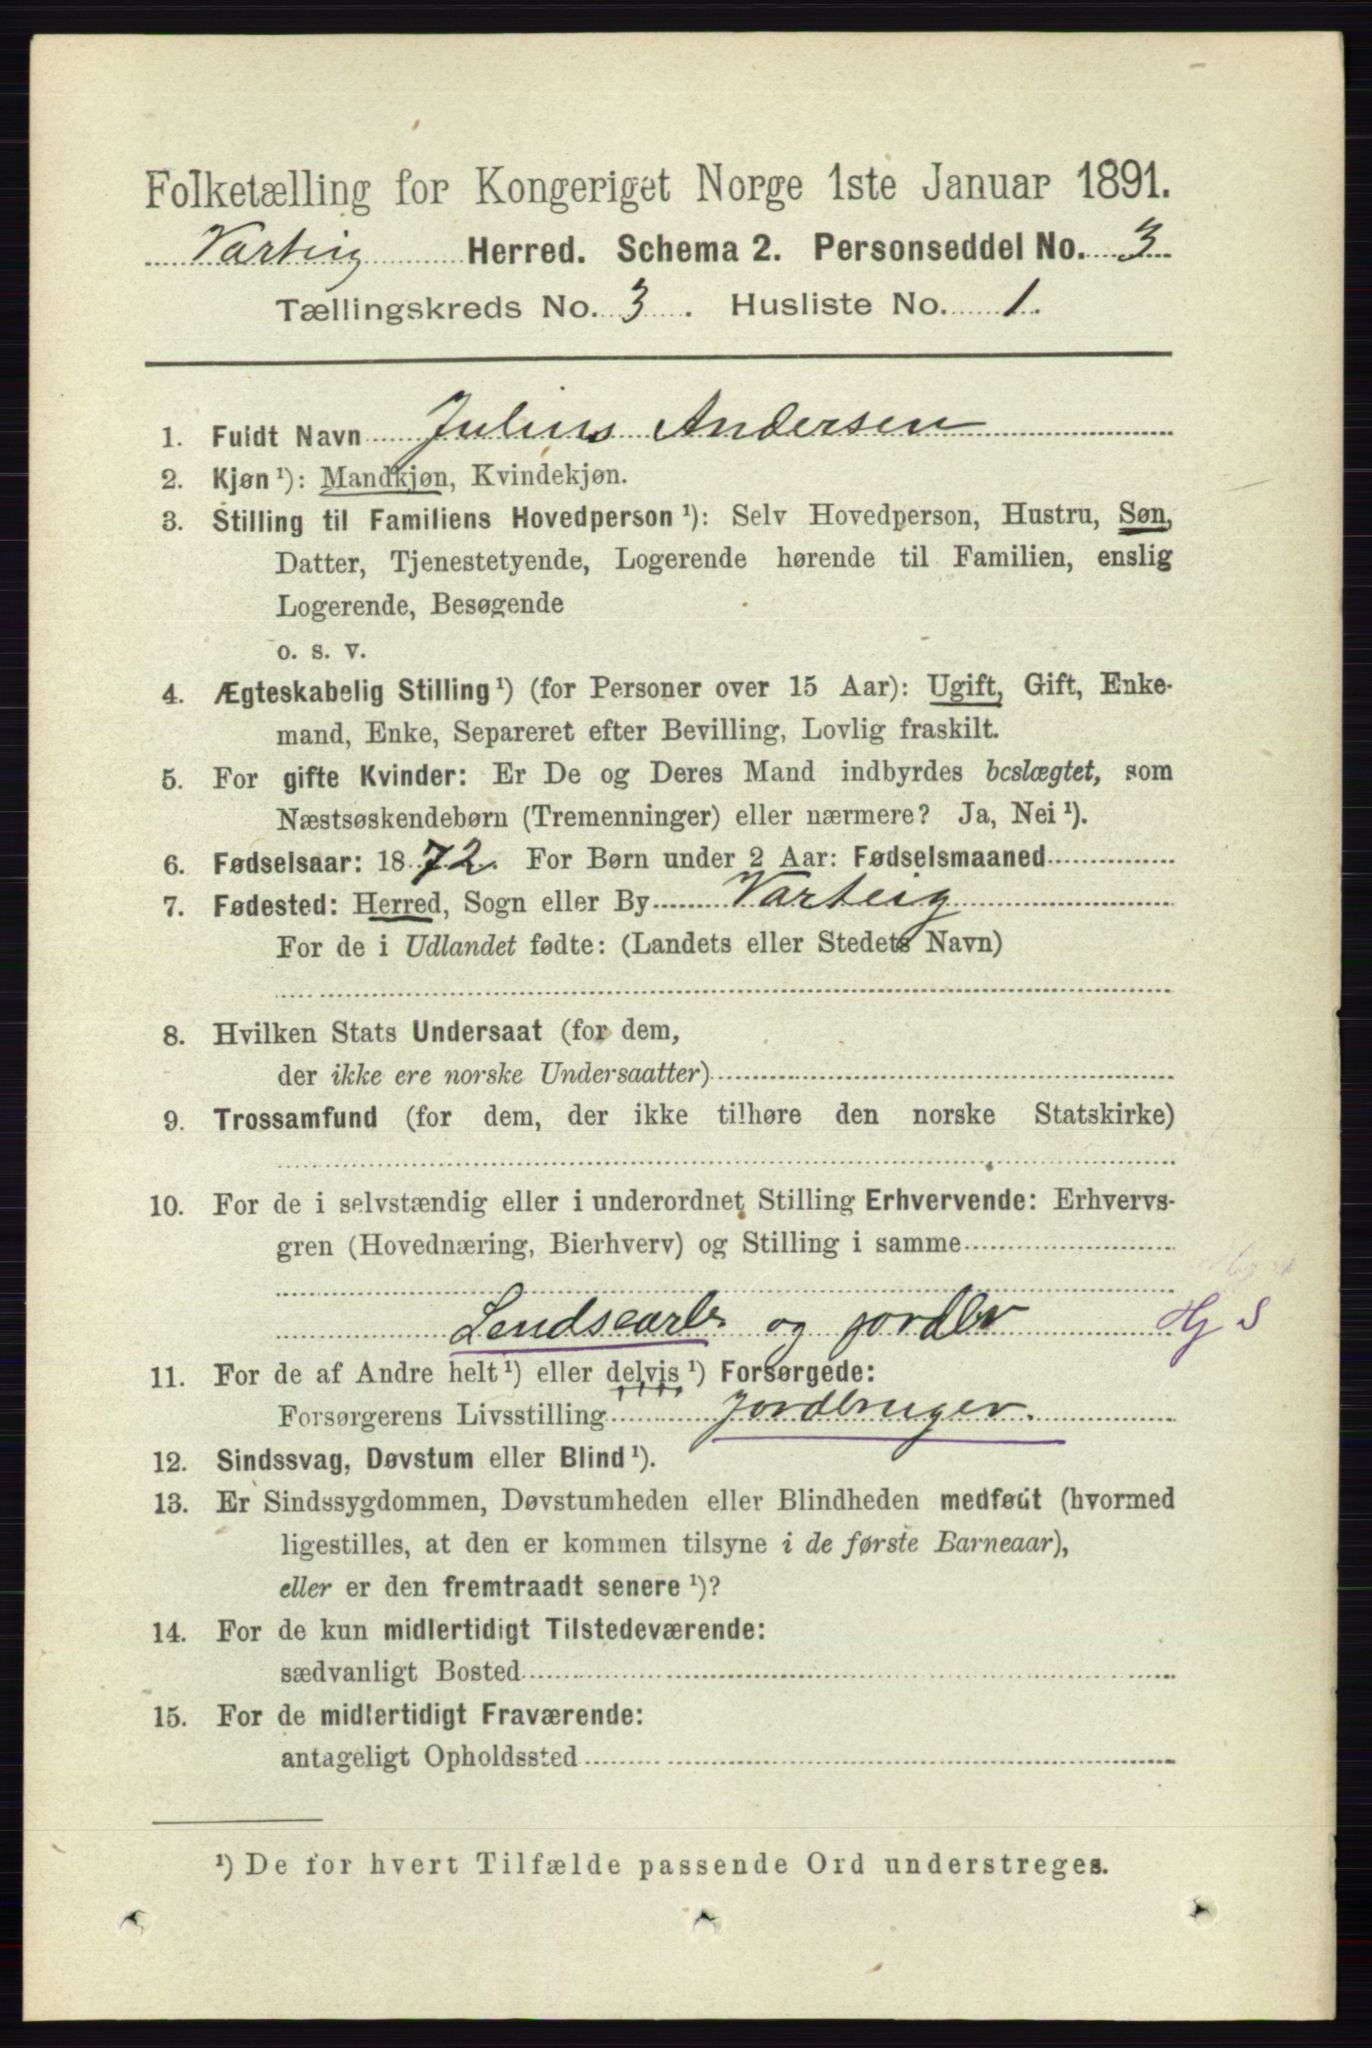 Folketælling for Kongeriget Norge 1ste Januar 1891.
Varteig Herred. Schema 2. Personseddel No. 3
Tællingskreds No. 3. Husliste No. 1.
1. Fuldt Navn Julius Andersen
2. Kjøn ¹): Mandkjøn, Kvindekjøn.
3. Stilling til Familiens Hovedperson ¹): Selv Hovedperson, Hustru, Søn,
Datter, Tjenestetyende, Logerende hørende til Familien, enslig
Logerende, Besøgende
o. s. v.
4. Ægteskabelig Stilling ¹) (for Personer over 15 Aar): Ugift, Gift, Enke-
mand, Enke, Separeret efter Bevilling, Lovlig fraskilt.
5. For gifte Kvinder: Er De og Deres Mand indbyrdes beslægtet, som
Næstsøskendebørn (Tremenninger) eller nærmere? Ja, Nei ¹).
6. Fødselsaar: 1872. For Børn under 2 Aar: Fødselsmaaned
7. Fødested: Herred, Sogn eller By Varteig
For de i Udlandet fødte: (Landets eller Stedets Navn)
8. Hvilken Stats Undersaat (for dem,
der ikke ere norske Undersaatter)
9. Trossamfund (for dem, der ikke tilhøre den norske Statskirke)
10. For de i selvstændig eller i underordnet Stilling Erhvervende: Erhvervs-
gren (Hovednæring, Bierhverv) og Stilling i samme
og jordbr Hj S
11. For de af Andre helt ¹) eller delvis ¹) Forsørgede:
Forsørgerens Livsstilling Jordbruger.
12. Sindssvag, Døvstum eller Blind ¹).
13. Er Sindssygdommen, Døvstumheden eller Blindheden medfødt (hvormed
ligestilles, at den er kommen tilsyne i de første Barneaar),
eller er den fremtraadt senere ¹)?
14. For de kun midlertidigt Tilstedeværende:
sædvanligt Bosted
15. For de midlertidigt Fraværende:
antageligt Opholdssted
¹) De for hvert Tilfælde passende Ord understreges.